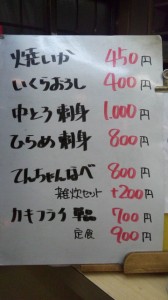 焼いか 450円
いくらおろし 400円
中とろ刺身 1,000円
ひらめ刺身 800円
てんちゃんなべ 800円
雑炊セット +200円
カキフライ 単品 700円
定食 900円